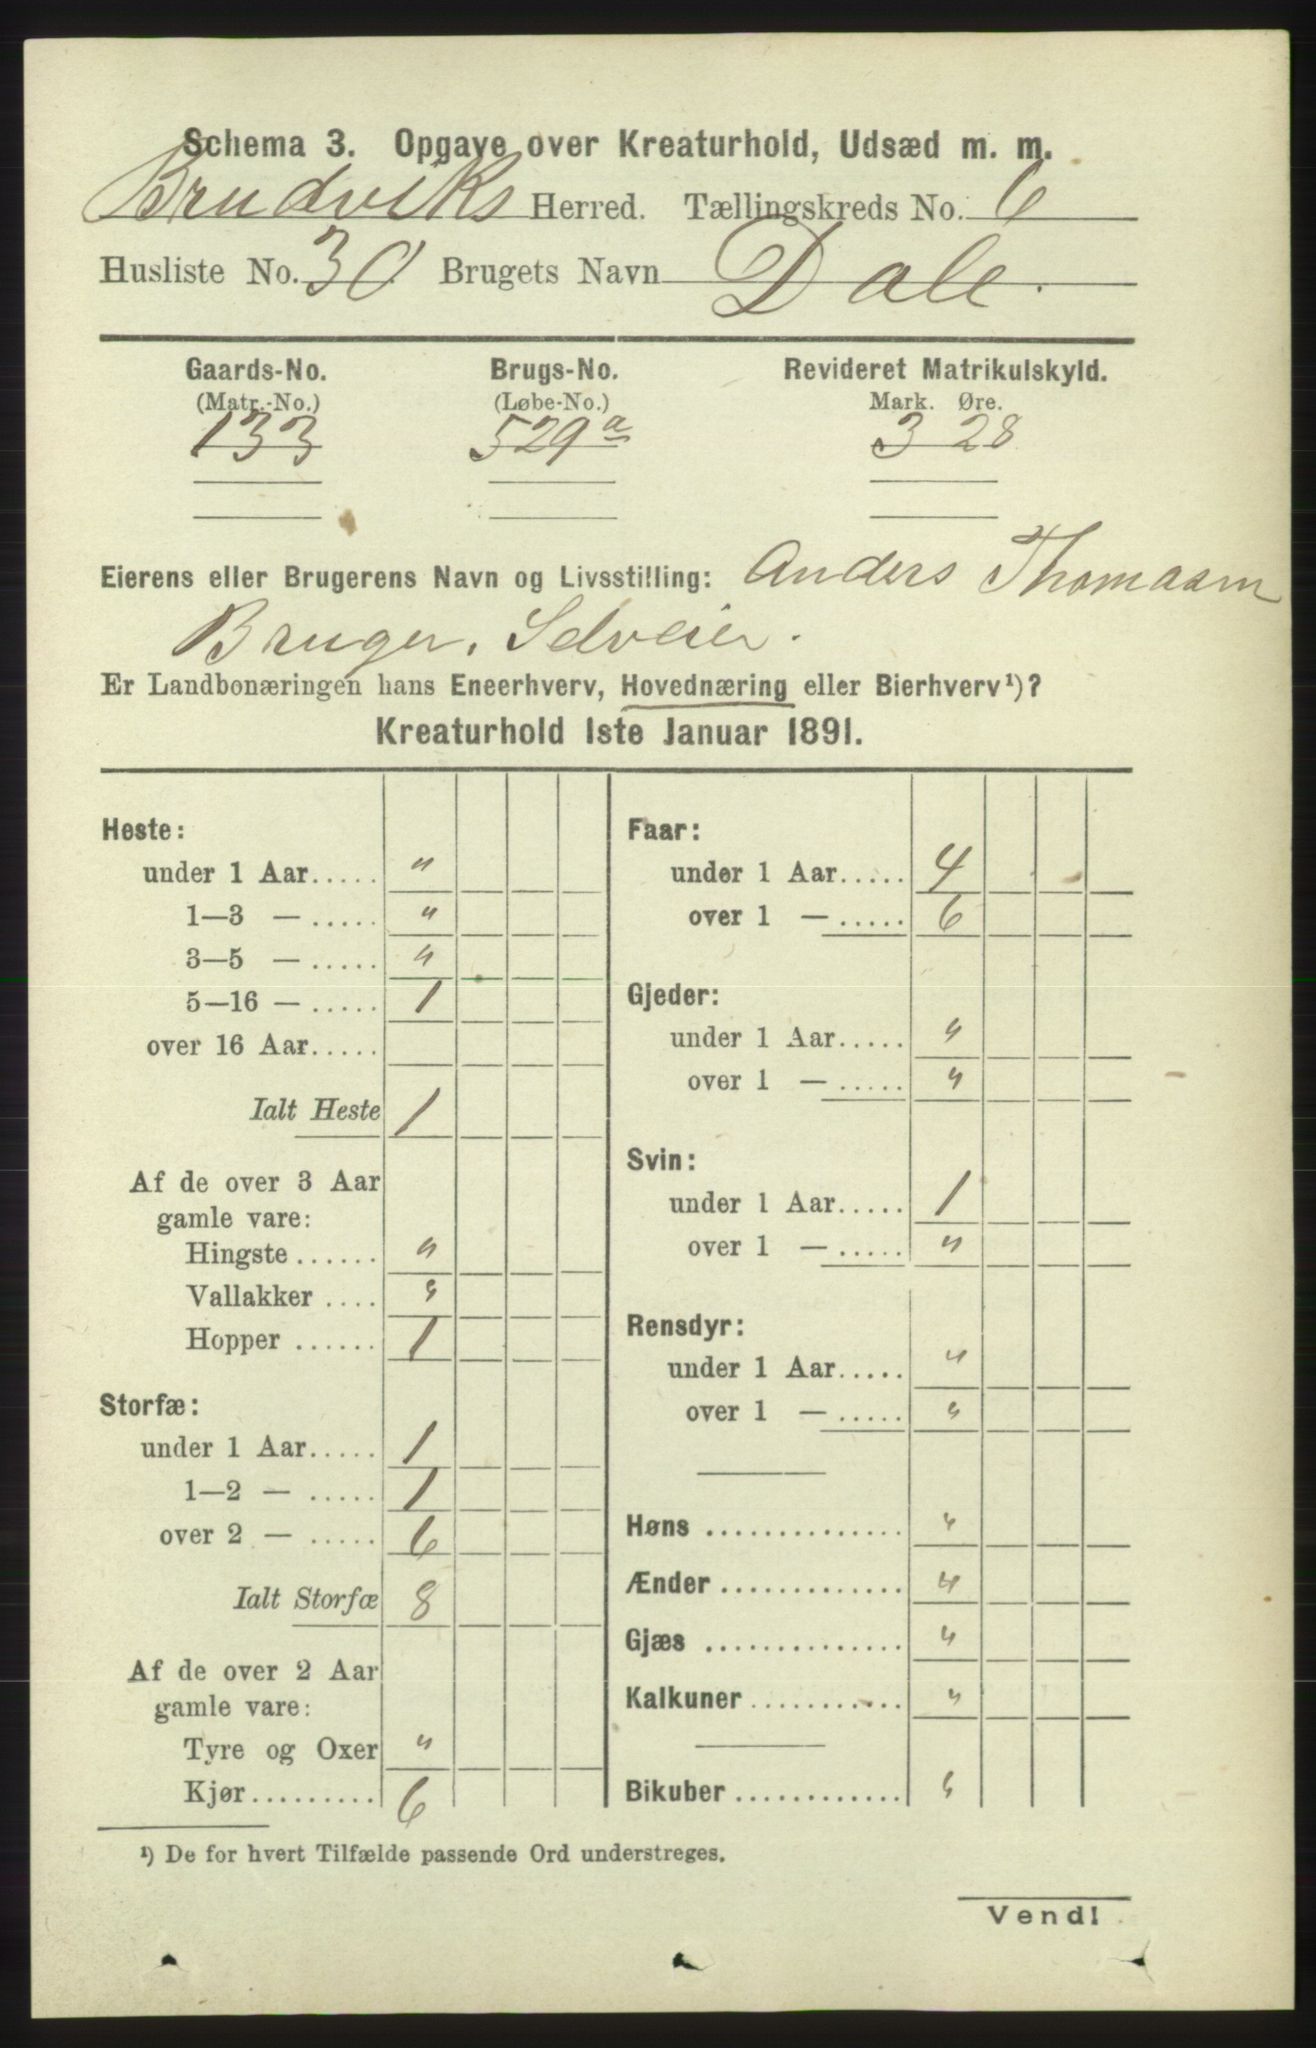 Schema 3. Opgave over Kreaturhold, Udsæd m. m.
Brudviks Herred. Tællingskreds No. 6
Husliste No. 30 Brugets Navn Dale.
Gaards-No. Brugs-No. Revideret Matrikulskyld.
(Matr.-No.) (Løbe-No.) Mark. Øre.
133 529 a 3 28
Eierens eller Brugerens Navn og Livsstilling: Anders Thomasen
Bruger, Selveier.
Er Landbonæringen hans Eneerhverv, Hovednæring eller Bierhverv¹)?
Kreaturhold 1ste Januar 1891.
Heste:
under 1 Aar..... "
1—3 — ..... "
3—5 — ..... "
5—16 — ..... 1
over 16 Aar.....
Ialt Heste 1
Af de over 3 Aar
gamle vare:
Hingste ...... "
Vallakker .... "
Hopper ...... 1
Storfæ:
under 1 Aar..... 1
1—2 — ..... 1
over 2 — ..... 6
Ialt Storfæ 8
Af de over 2 Aar
gamle vare:
Tyre og Oxer "
Kjør......... 6
Faar:
under 1 Aar..... 4
over 1 — ..... 6
Gjeder:
under 1 Aar..... "
over 1 — ..... "
Svin:
under 1 Aar..... 1
over 1 — ..... "
Rensdyr:
under 1 Aar..... "
over 1 — ..... "
Høns .............. "
Ænder ............. "
Gjæs .............. "
Kalkuner ........... "
Bikuber ............ "
¹) De for hvert Tilfælde passende Ord understreges.
Vend!